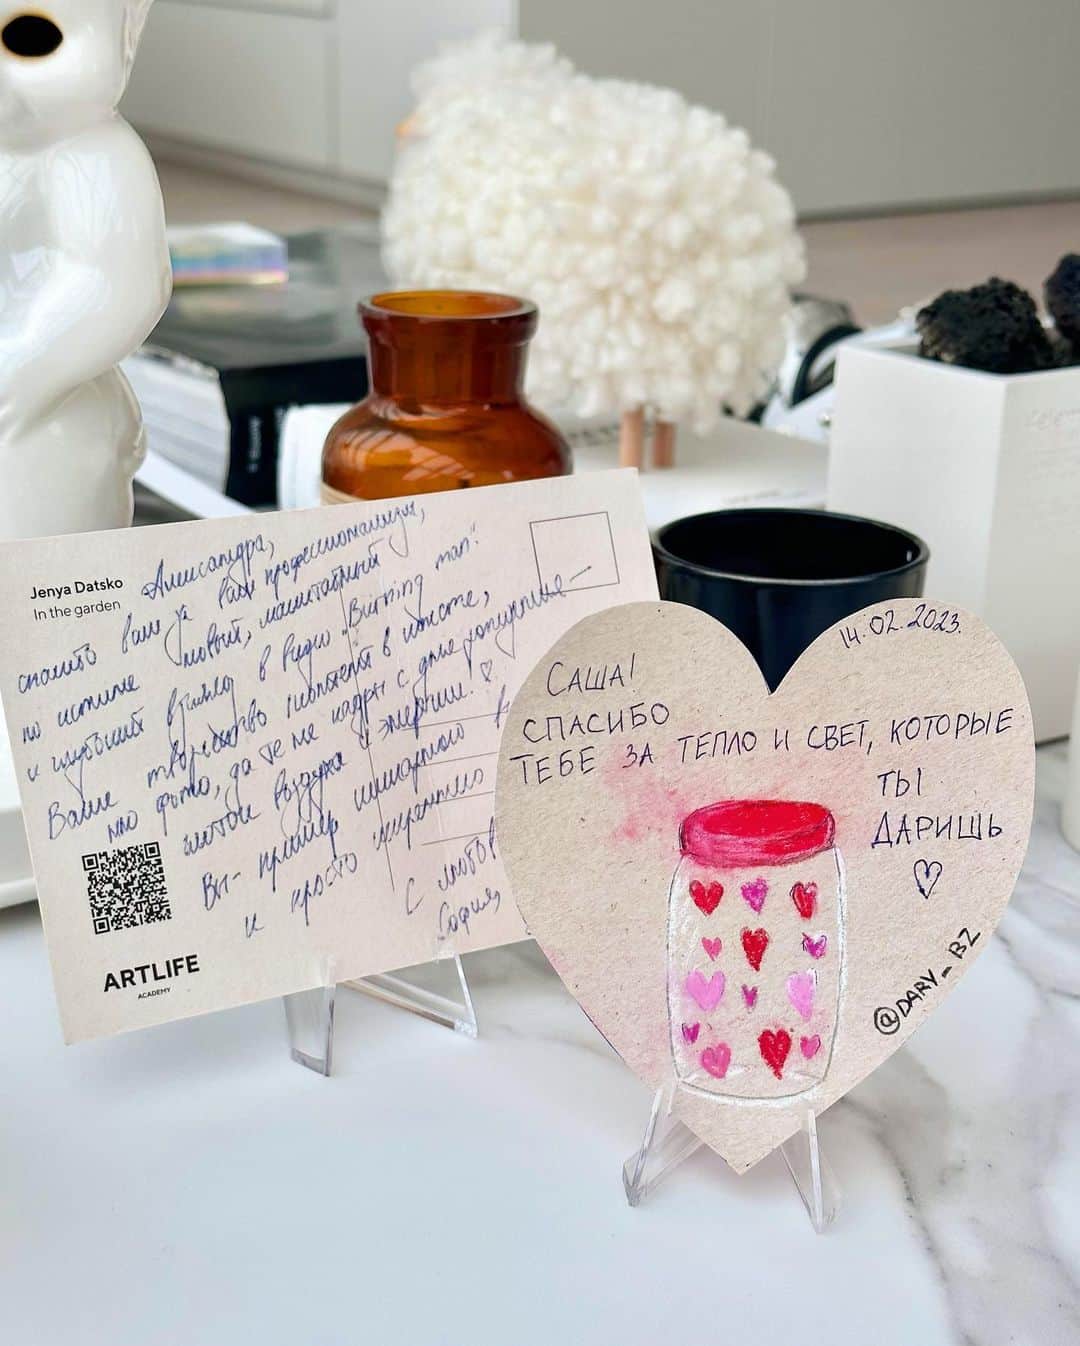 Jenya Datsko
In the garden
Александра,
спасибо вам за ваш профессионализм,
по истине новый, масштабный
и глубокий взгляд в видио "Burning man".
Ваше творчество
мно фото, да те же кадры с
воздуха и энергии! ♡
Вы - пример шикарного
и просто
С любов
София,
ARTLIFE
ACADEMY
14.02.2023.
САША!
СПАСИБО
ТЕБЕ ЗА ТЕПЛО И СВЕТ, КОТОРЫЕ
ТЫ
ДАРИШЬ
♡
@DARY_BZ